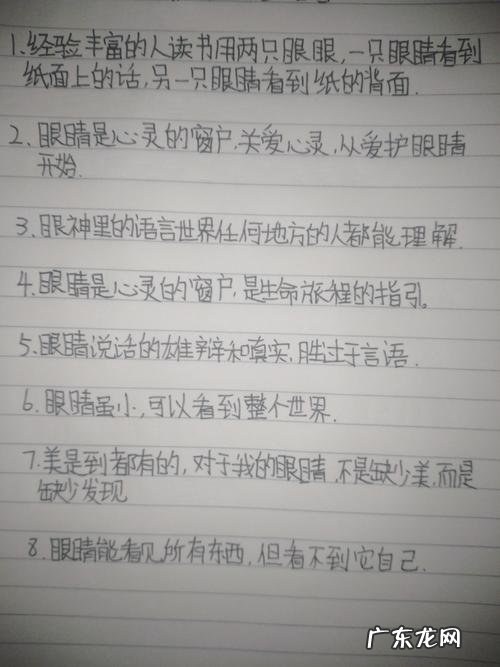 1.经验丰富的人读书用两只眼眼,一只眼睛看到
纸面上的话,另一只眼睛看到纸的背面.
2.眼睛是心灵的窗户,关爱心灵,从爱护眼睛
开始.
3.眼神里的语言世界任何地方的人都能理解.
4.眼睛是心灵的窗户,是生命旅程的指引。
5.眼睛说话的雄辩和真实,胜过于言语.
6.眼睛虽小,可以看到整个世界.
7.美是到都有的,对于我的眼睛,不是缺少美,而是
缺少发现
8.眼睛能看见所有东西,但看不到它自己.
广东龙网